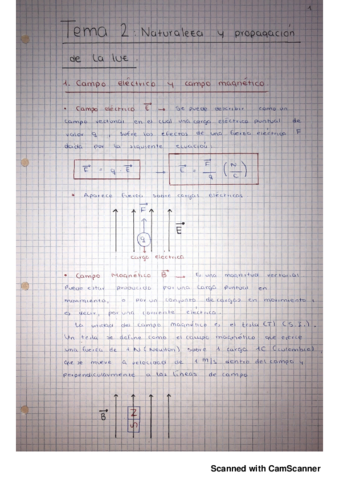 1
Tema 2: Naturaleza y propagación
de la luz.
1. Campo eléctrico y campo magnético
• Campo eléctrico E → Se puede describir como un
campo vectorial en el cual una carga eléctrica puntual de
valor q, sufre los efectos de una fuerza eléctrica F
dada por la siguiente ecuación:
F = q · E → E = F/q (N/C)
• Aparece fuerza sobre cargas eléctricas
F
E
q
carga eléctrica
• Campo Magnético B → Es una magnitud vectorial
Puede estar producido por una carga puntual en
movimiento, o por un conjunto de cargas en movimiento,
es decir, por una corriente eléctrica.
La unidad del campo magnético es el tesla (T) (S.I.).
Un tesla se define como el campo magnético que ejerce
una fuerza de 1 N (Newton) sobre 1 carga 1C (culombio)
que se mueve a velocidad de 1 m/s dentro del campo y
perpendicularmente a las líneas de campo.
B
N
S
Scanned with CamScanner